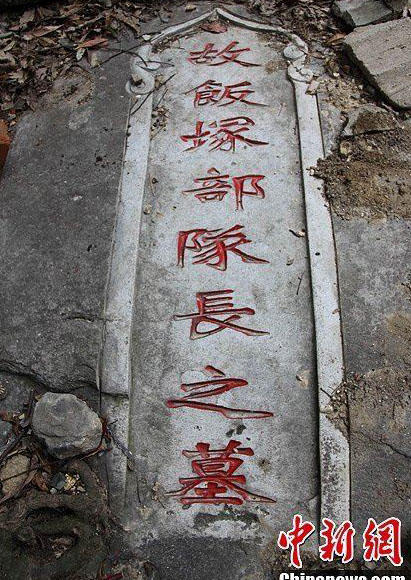 故飯塚部隊長之墓
中新网
Chinanews.com